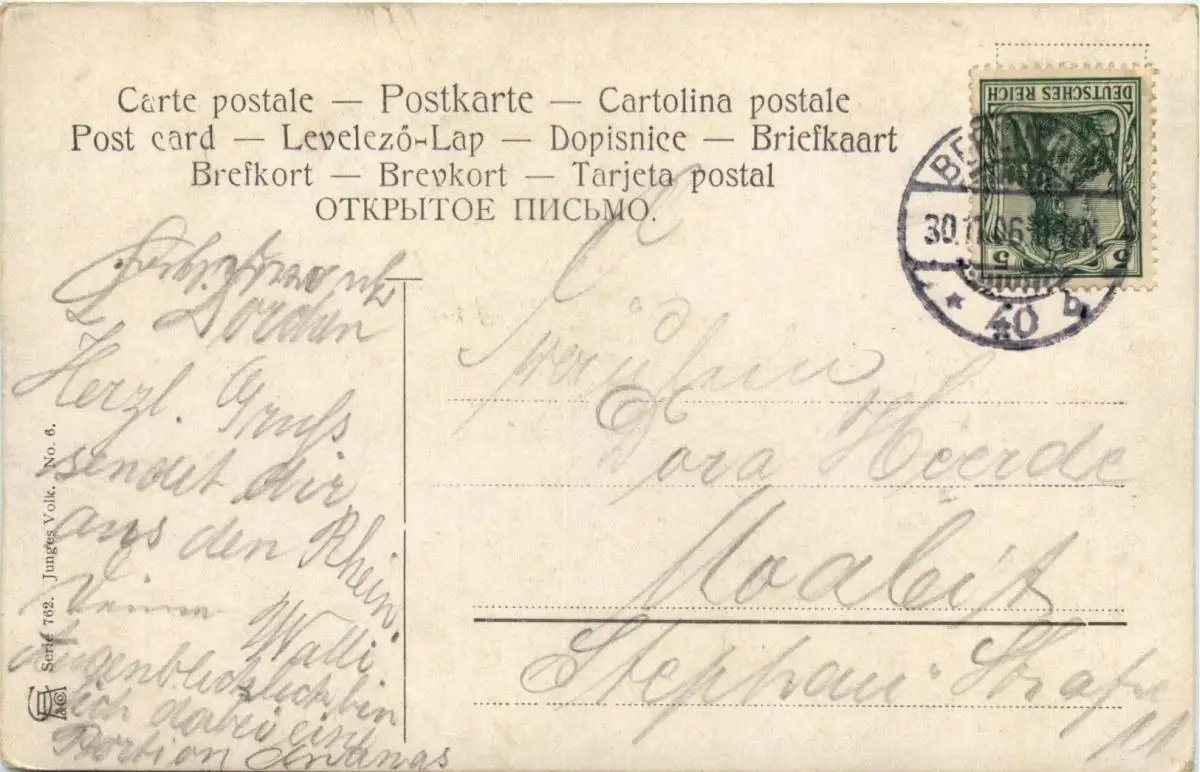 Carte postale — Postkarte — Cartolina postale
Post card — Levelező-Lap — Dopisnice — Briefkaart
Brefkort — Brevkort — Tarjeta postal
ОТКРЫТОЕ ПИСЬМО.
DEUTSCHES REICH
5 5
BERLIN
30.11.06.
* 40 b.
Herzl. Gruß
sendet dir
aus den Rhein.
Deine
Walli
Augenblicklich bin
ich dabei eine
Portion Ananas
Fräulein
Dora Heerde
Moabit
Stephan-Straße
11
Serie 762. Junges Volk. No. 6.